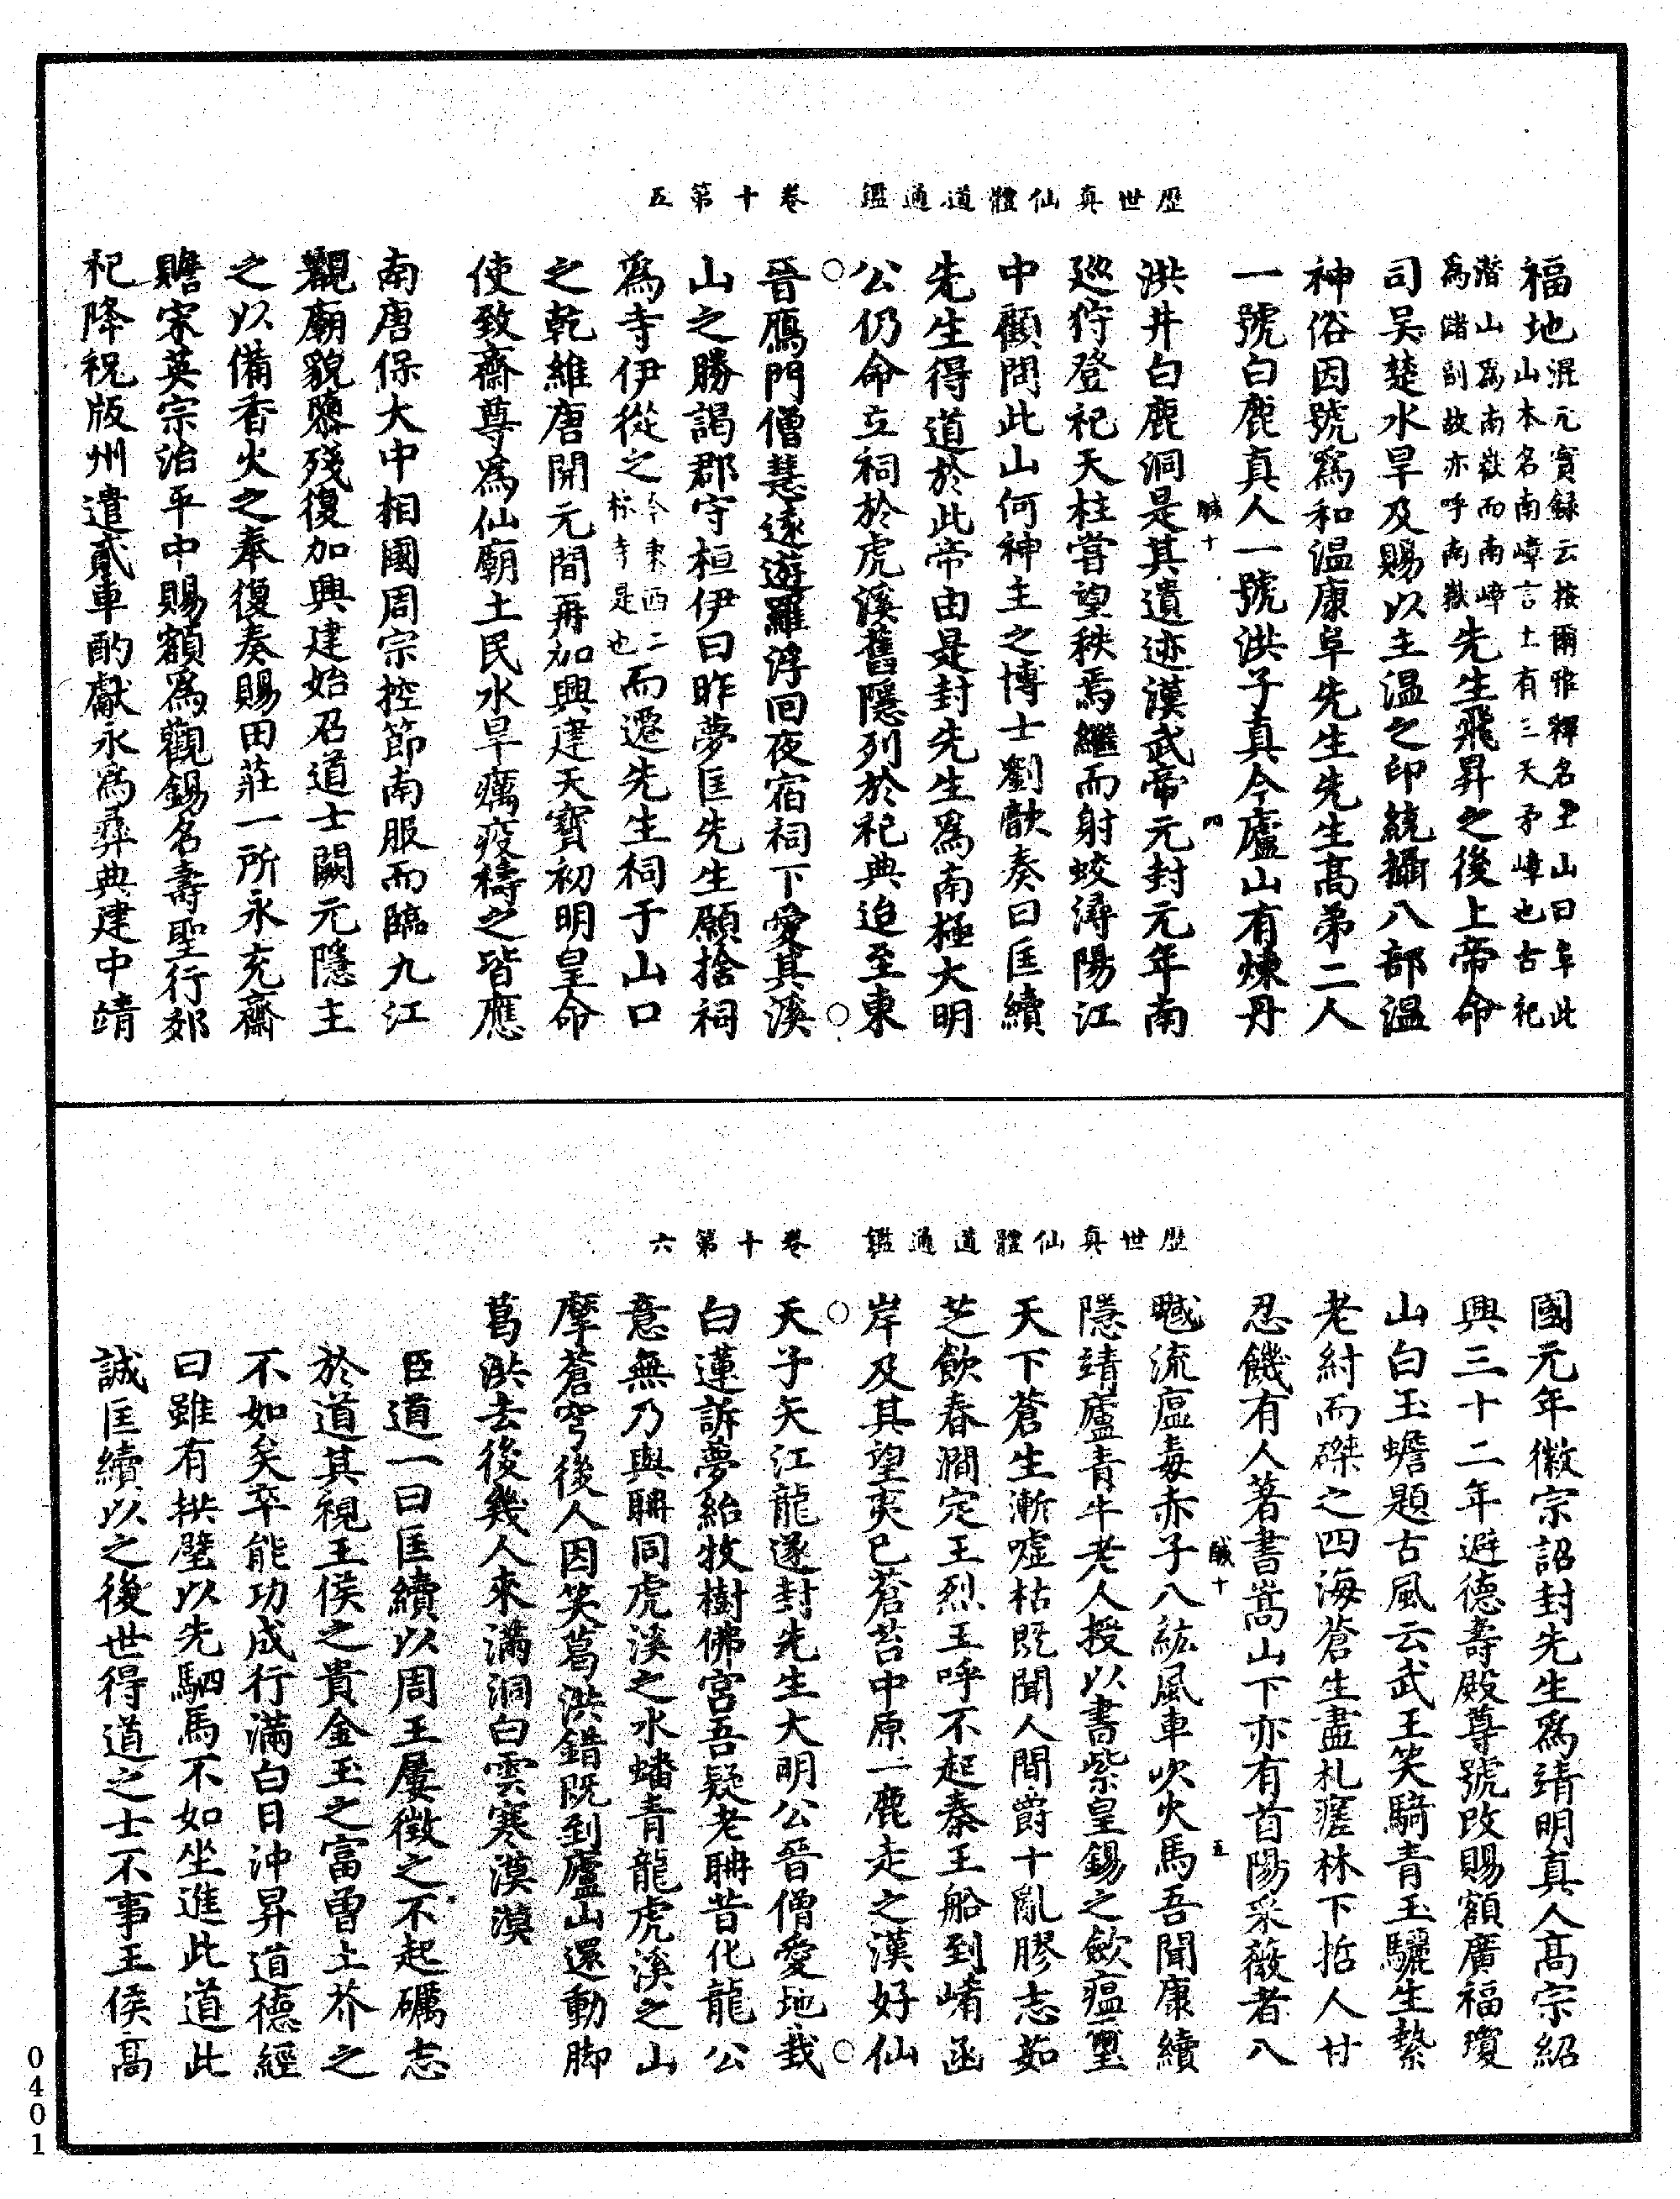 歷世真仙體道通鑑　卷十第五
福地混元實録云按爾雅釋名土山曰阜此山本名南嶂言士有三天矛嶂也古祀潛山爲南嶽而南嶂爲儲副故亦呼南嶽先生飛昇之後上帝命
司吴楚水旱及賜以主温之印統攝八部温
神俗因號爲和温康阜先生先生髙弟二人
一號白鹿真人一號洪子真今廬山有煉丹
洪井白鹿洞是其遺迹漢武帝元封元年南
巡狩登祀天柱嘗望秩焉繼而射蛟潯陽江
中顧問此山何神主之博士劉歆奏曰匡續
先生得道於此帝由是封先生爲南極大明
公仍命立祠於虎溪舊隱列於祀典迨至東
晉鴈門僧慧遠遊羅浮回夜宿祠下愛其溪
山之勝謁郡守桓伊曰昨夢匡先生願捨祠
爲寺伊從之今東西二林寺是也而遷先生祠于山口
之乾維唐開元間再加興建天寶初明皇命
使致齋尊爲仙廟土民水旱癘疫禱之皆應
南唐保大中相國周宗控節南服而臨九江
觀廟貌隳殘復加興建始召道士闕元隱主
之以備香火之奉復奏賜田莊一所永充齋
贍宋英宗治平中賜額爲觀錫名壽聖行郊
祀降祝版州遣貳車酌獻永爲彛典建中靖
歷世真仙體道通鑑　卷十第六
國元年徽宗詔封先生爲靖明真人髙宗紹
興三十二年避德壽殿尊號改賜額廣福瓊
山白玉蟾題古風云武王笑騎青玉驪生縶
老紂而磔之四海蒼生盡札瘥林下哲人甘
忍饑有人著書嵩山下亦有首陽采薇者八
虣流瘟毒赤子八紘風車吹火馬吾聞康續
隱靖廬青牛老人授以書紫皇錫之斂瘟璽
天下蒼生漸嘘枯既聞人間爵十亂膠志茹
芝飲春澗定王烈王呼不起秦王船到崤函
岸及其望夷已蒼苔中原一鹿走之漢好仙
天子矢江龍遂封先生大明公晉僧愛地栽
白蓮訴夢紿牧樹佛宫吾疑老聃昔化龍公
意無乃與聃同虎溪之水蟠青龍虎溪之山
摩蒼穹後人因笑葛洪錯既到廬山還動脚
葛洪去後幾人來滿洞白雲寒漠漠
臣道一曰匡續以周王屢徵之不起礪志
於道其視王侯之貴金玉之富曽土芥之
不如矣卒能功成行滿白日沖昇道德經
曰雖有拱璧以先駟馬不如坐進此道此
誠匡續以之後世得道之士不事王侯髙
0401